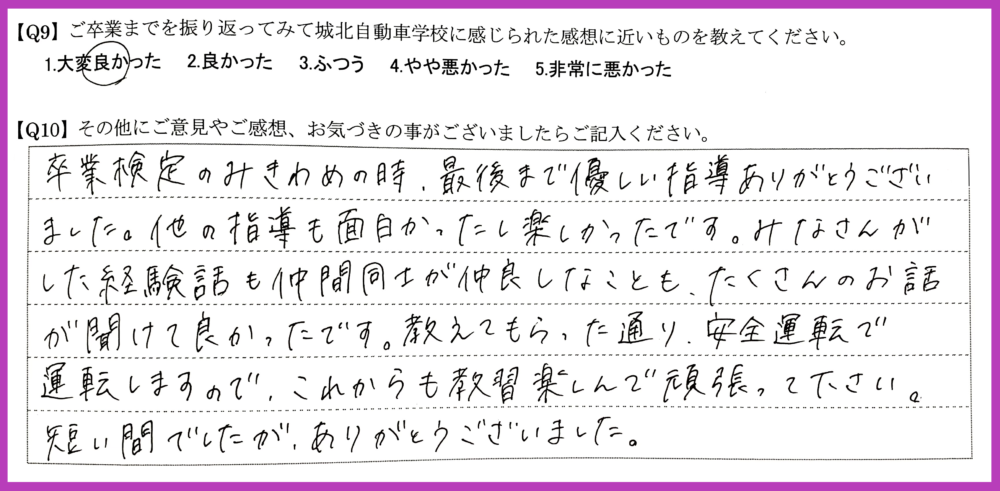 【Q9】ご卒業までを振り返ってみて城北自動車学校に感じられた感想に近いものを教えてください。
1.大変良かった 2.良かった 3.ふつう 4.やや悪かった 5.非常に悪かった
【Q10】その他にご意見やご感想、お気づきの事がございましたらご記入ください。
卒業検定のみきわめの時、最後まで優しい指導ありがとうござい
ました。他の指導も面白かったし楽しかったです。みなさんが
した経験話も仲間同士が仲良しなことも、たくさんのお話
が聞けて良かったです。教えてもらった通り、安全運転で
運転しますので、これからも教習楽しんで頑張って下さい。
短い間でしたが、ありがとうございました。